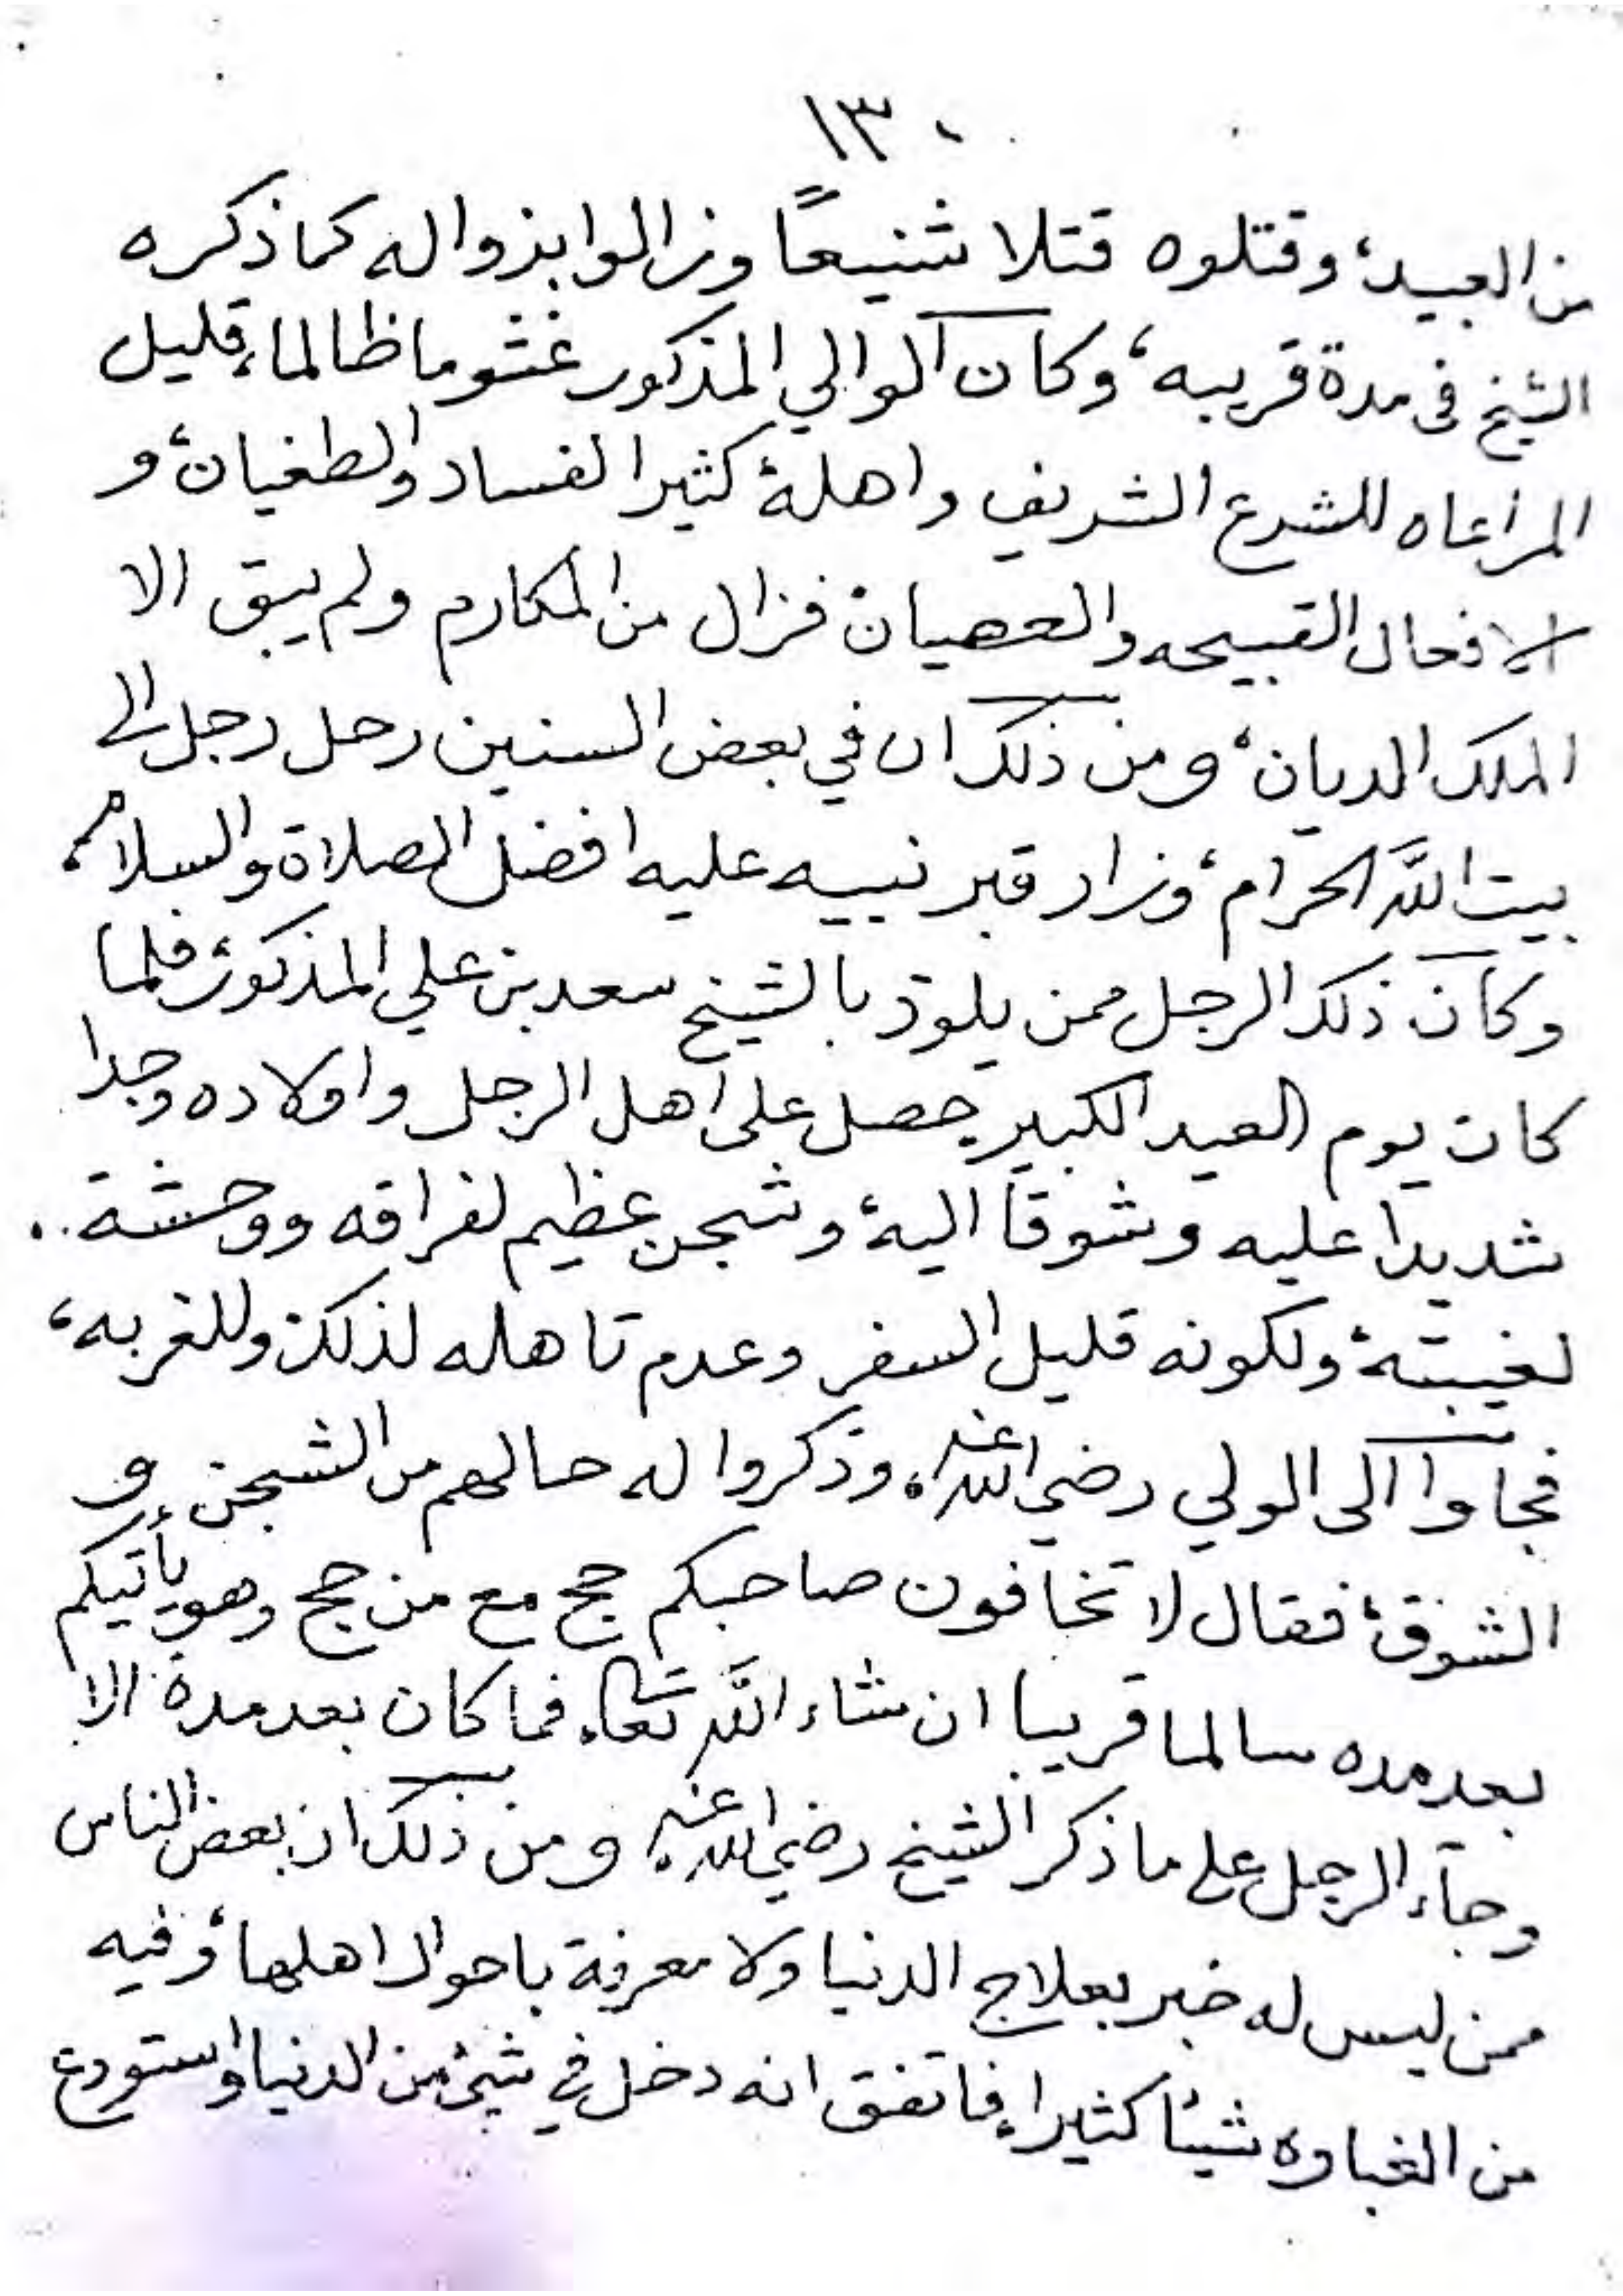 ١٣٠
من العبيد، وقتلوه قتلا شنيعًا وزالوا بزواله كما ذكره
الشيخ فى مدة قريبه، وكان الوالي المذكور غشوما ظالما، قليل
المراعاه للشرع الشريف واهله، كثير الفساد والطغيان، و
الافعال القبيحه والعصيان، فزال من المكارم ولم يبق الا
الملك الديان، ومن ذلك ان في بعض السنين رحل رجل الى
بيت الله الحرام، وزار قبر نبيه عليه افضل الصلاة والسلام،
وكان ذلك الرجل ممن يلوذ بالشيخ سعد بن علي المذكور، فلما
كان يوم العيد الكبير حصل على اهل الرجل واولاده وجدا
شديدا عليه وشوقا اليه، وشجن عظيم لفراقه ووحشة..
لغيبته، ولكونه قليل السفر وعدم تاهله لذلك، وللغربه،
فجاوا الى الولي رضي الله عنه، وذكروا له حالهم من الشجن و
الشوق، فقال لا تخافون صاحبكم حج مع من حج وهو يأتيكم
بعد مده سالما قريبا ان شاء الله تعالى، فما كان بعد مدة الا
وجآء الرجل على ما ذكر الشيخ رضي الله عنه، ومن ذلك ان بعض الناس
ممن ليس له خبر بعلاج الدنيا ولا معرفة باحوال اهلها، وفيه
من الغباوه شيئا كثيرا، فاتفق انه دخل في شيئ من الدنيا واستودع